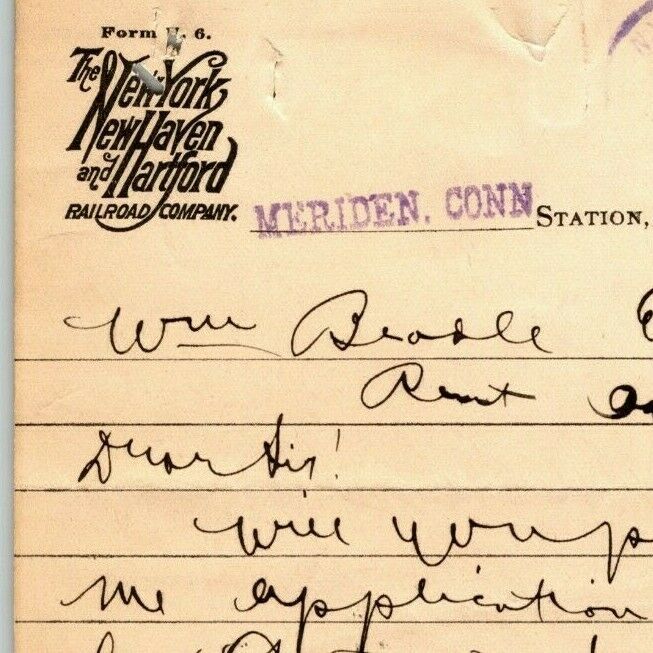 Form 6.
The New York
New Haven
and Hartford
RAILROAD COMPANY.
MERIDEN, CONN STATION,
Wm Beadle
Rent
Dear Sir!
will you p
me application